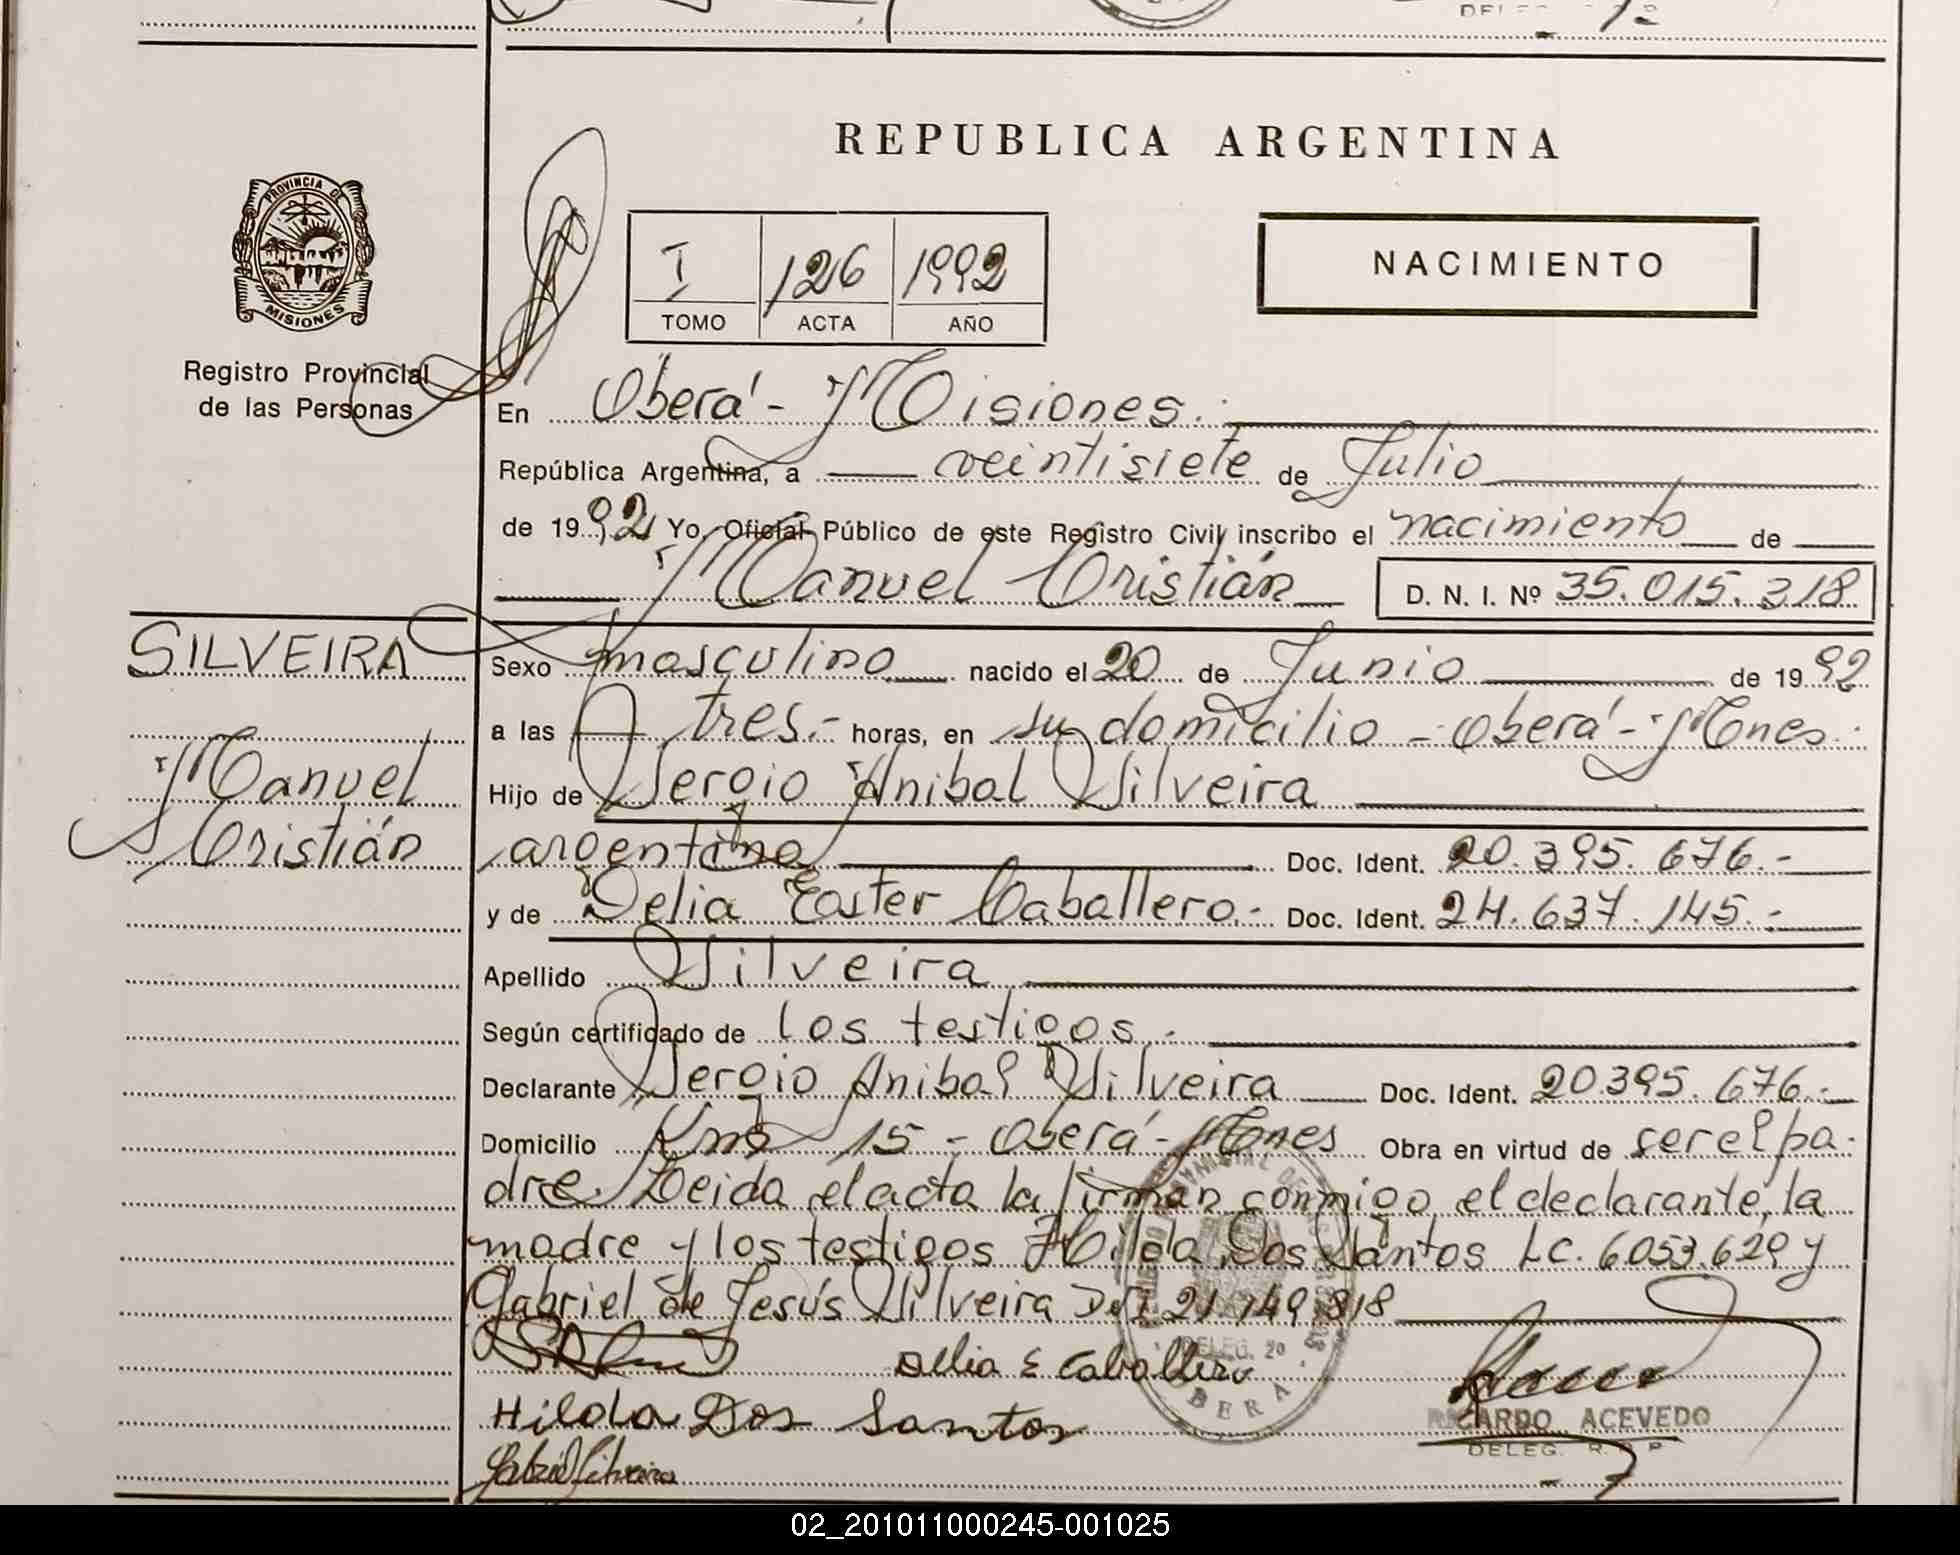 PROVINCIA DE
MISIONES
Registro Provincial
de las Personas
REPUBLICA ARGENTINA
I 126 1992
TOMO ACTA AÑO
NACIMIENTO
En Oberá - Misiones.
República Argentina, a veintisiete de Julio
de 1992 Yo, Oficial Público de este Registro Civil inscribo el nacimiento de
Manuel Cristián D. N. I. Nº 35.015.318
SILVEIRA
Manuel
Cristián
Sexo masculino nacido el 20 de Junio de 1992
a las tres.- horas, en su domicilio - Oberá - Mnes.
Hijo de Sergio Anibal Silveira
argentino Doc. Ident. 20.395.676.-
y de Delia Ester Caballero.- Doc. Ident. 24.637.145.-
Apellido Silveira
Según certificado de los testigos.-
Declarante Sergio Anibal Silveira Doc. Ident. 20.395.676.-
Domicilio Kms 15 - Oberá - Mnes Obra en virtud de ser el pa-
dre. Leida el acta la firman conmigo el declarante, la
madre y los testigos Hilda Dos Santos L.C. 6.053.629 y
Gabriel de Jesús Silveira DNI 21.149.818
Delia E Caballero
Hilda Dos Santos
Gabriel Silveira
DELEG. 20
OBERA
RICARDO ACEVEDO
DELEG. R. P.
02_201011000245-001025